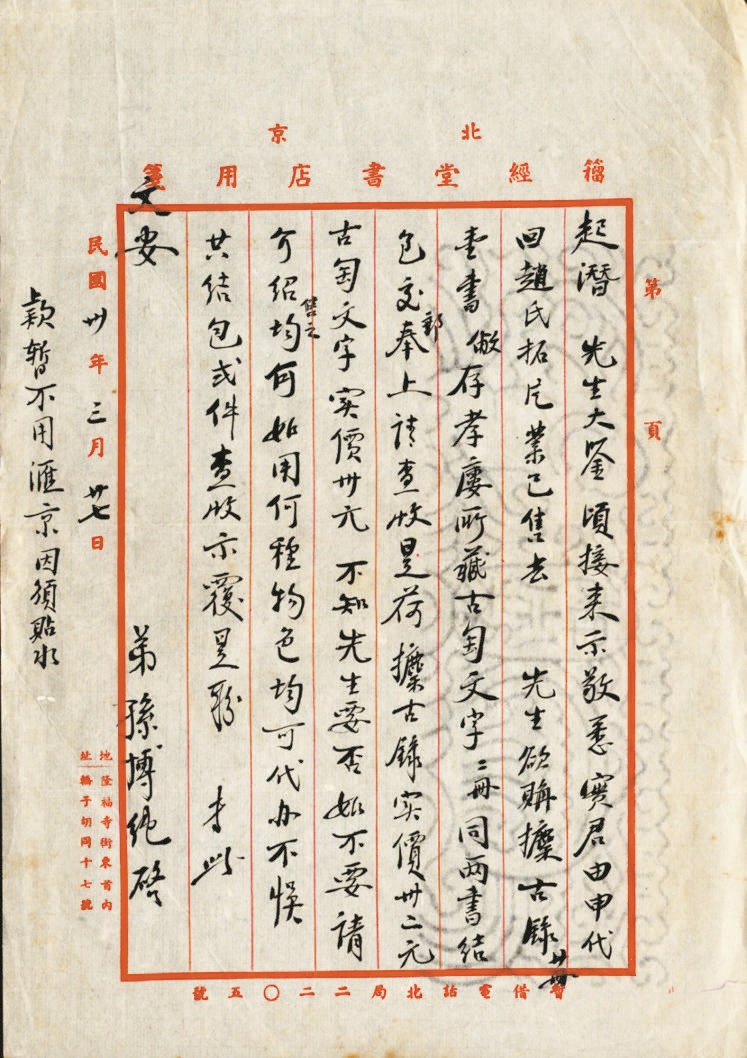 北京
籀經堂書店用箋
第 頁
起潛 先生大鉴 頃接来示敬悉 實君由申代
回趙氏拓片業已售去 先生欲購攈古錄廿冊
壹書 倣存孝廔所藏古匋文字二冊 同两書结
包交郵奉上请查收是荷 攈古錄实價卅二元
古匋文字实價卅元 不知先生要否 如不要請
介绍售之均可 如用何種物色均可代办不悮
共结包弍件查收示覆是盼 专此
文安
弟 孫博純啓
民國卅年三月廿七日
款暂不用滙京因須貼水
地址 隆福寺街東首內
轎子胡同十七號
暫借電話北局二二〇五號